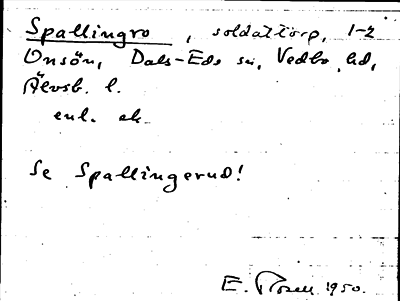 Spallingro, soldattorp, 1-2
Onsön, Dals-Eds sn, Vedbo hd,
Älvsb. l.
enl. ek.
Se Spallingerud!
E. Rosell 1950.